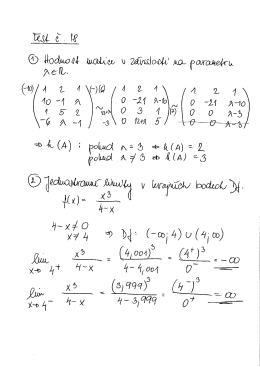 Test č. 18
① Hodnost matice v závislosti na parametru
r∈R.
(-10) ( 1 2 1 ) (-1)(6) ( 1 2 1 ) ( 1 2 1 )
10 -1 r ~ 0 -21 r-10 ~ 0 -21 r-10
1 5 2 0 3 1 0 0 r-3
-6 r -1 0 12+r 5 0 0 r-3
⇒ h(A) : pokud r = 3 ⇒ h(A) = 2
pokud r ≠ 3 ⇒ h(A) = 3
② Jednostranné limity v krajních bodech Df.
f(x) = x³ / 4-x
4-x ≠ 0
x ≠ 4 ⇒ Df: (-∞; 4) ∪ (4; ∞)
lim x→4⁺ x³ / 4-x = (4,001)³ / 4-4,001 = (4⁺)³ / 0⁻ = -∞
lim x→4⁻ x³ / 4-x = (3,999)³ / 4-3,999 = (4⁻)³ / 0⁺ = ∞